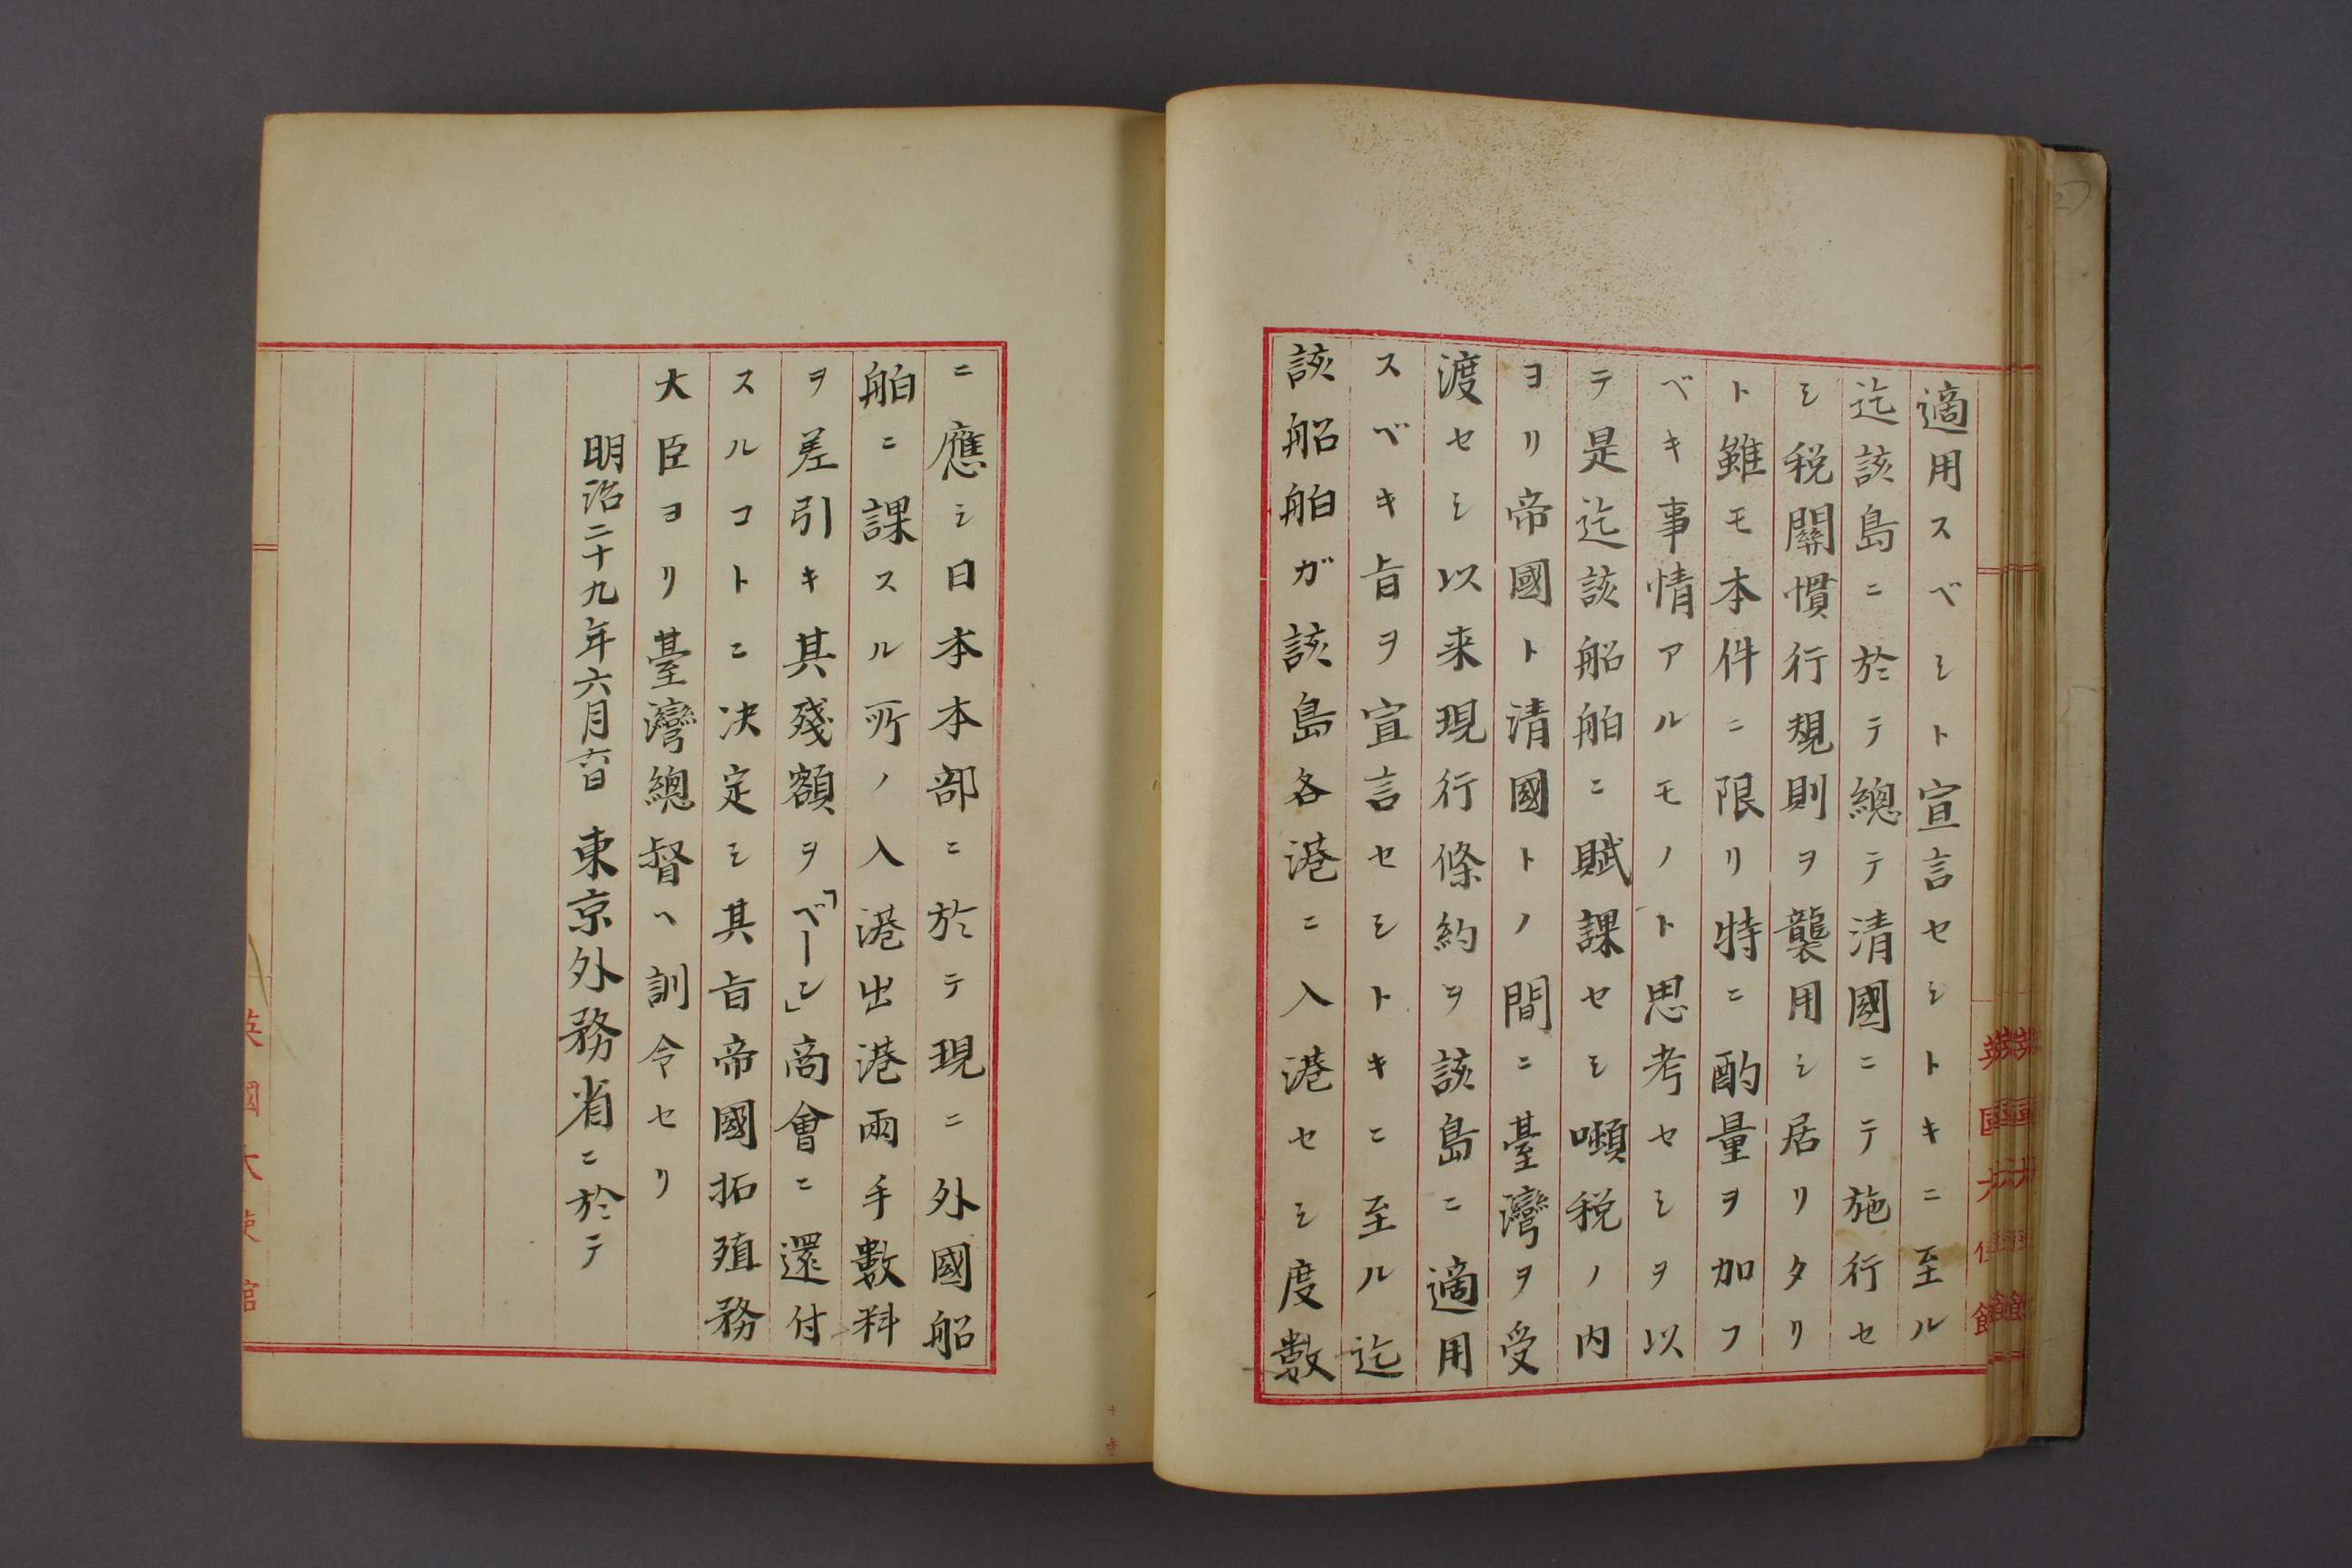 適用スベシト宣言セシトキニ至ル
迄該島ニ於テ總テ清國ニテ施行セ
シ税關慣行規則ヲ襲用シ居リタリ
ト雖モ本件ニ限リ特ニ酌量ヲ加フ
ベキ事情アルモノト思考セシヲ以
テ是迄該船舶ニ賦課セシ噸税ノ内
ヨリ帝國ト清國トノ間ニ臺灣ヲ受
渡セシ以来現行條約ヲ該島ニ適用
スベキ旨ヲ宣言セシトキニ至ル迄
該船舶ガ該島各港ニ入港セシ度數
ニ應シ日本本部ニ於テ現ニ外國船
舶ニ課スル所ノ入港出港兩手數料
ヲ差引キ其殘額ヲ「ベーン」商會ニ還付
スルコトニ决定シ其旨帝國拓殖務
大臣ヨリ臺灣總督ヘ訓令セリ
明治二十九年六月六日 東京外務省ニ於テ